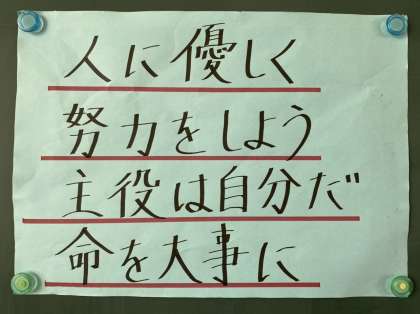 人に優しく
努力をしよう
主役は自分だ
命を大事に